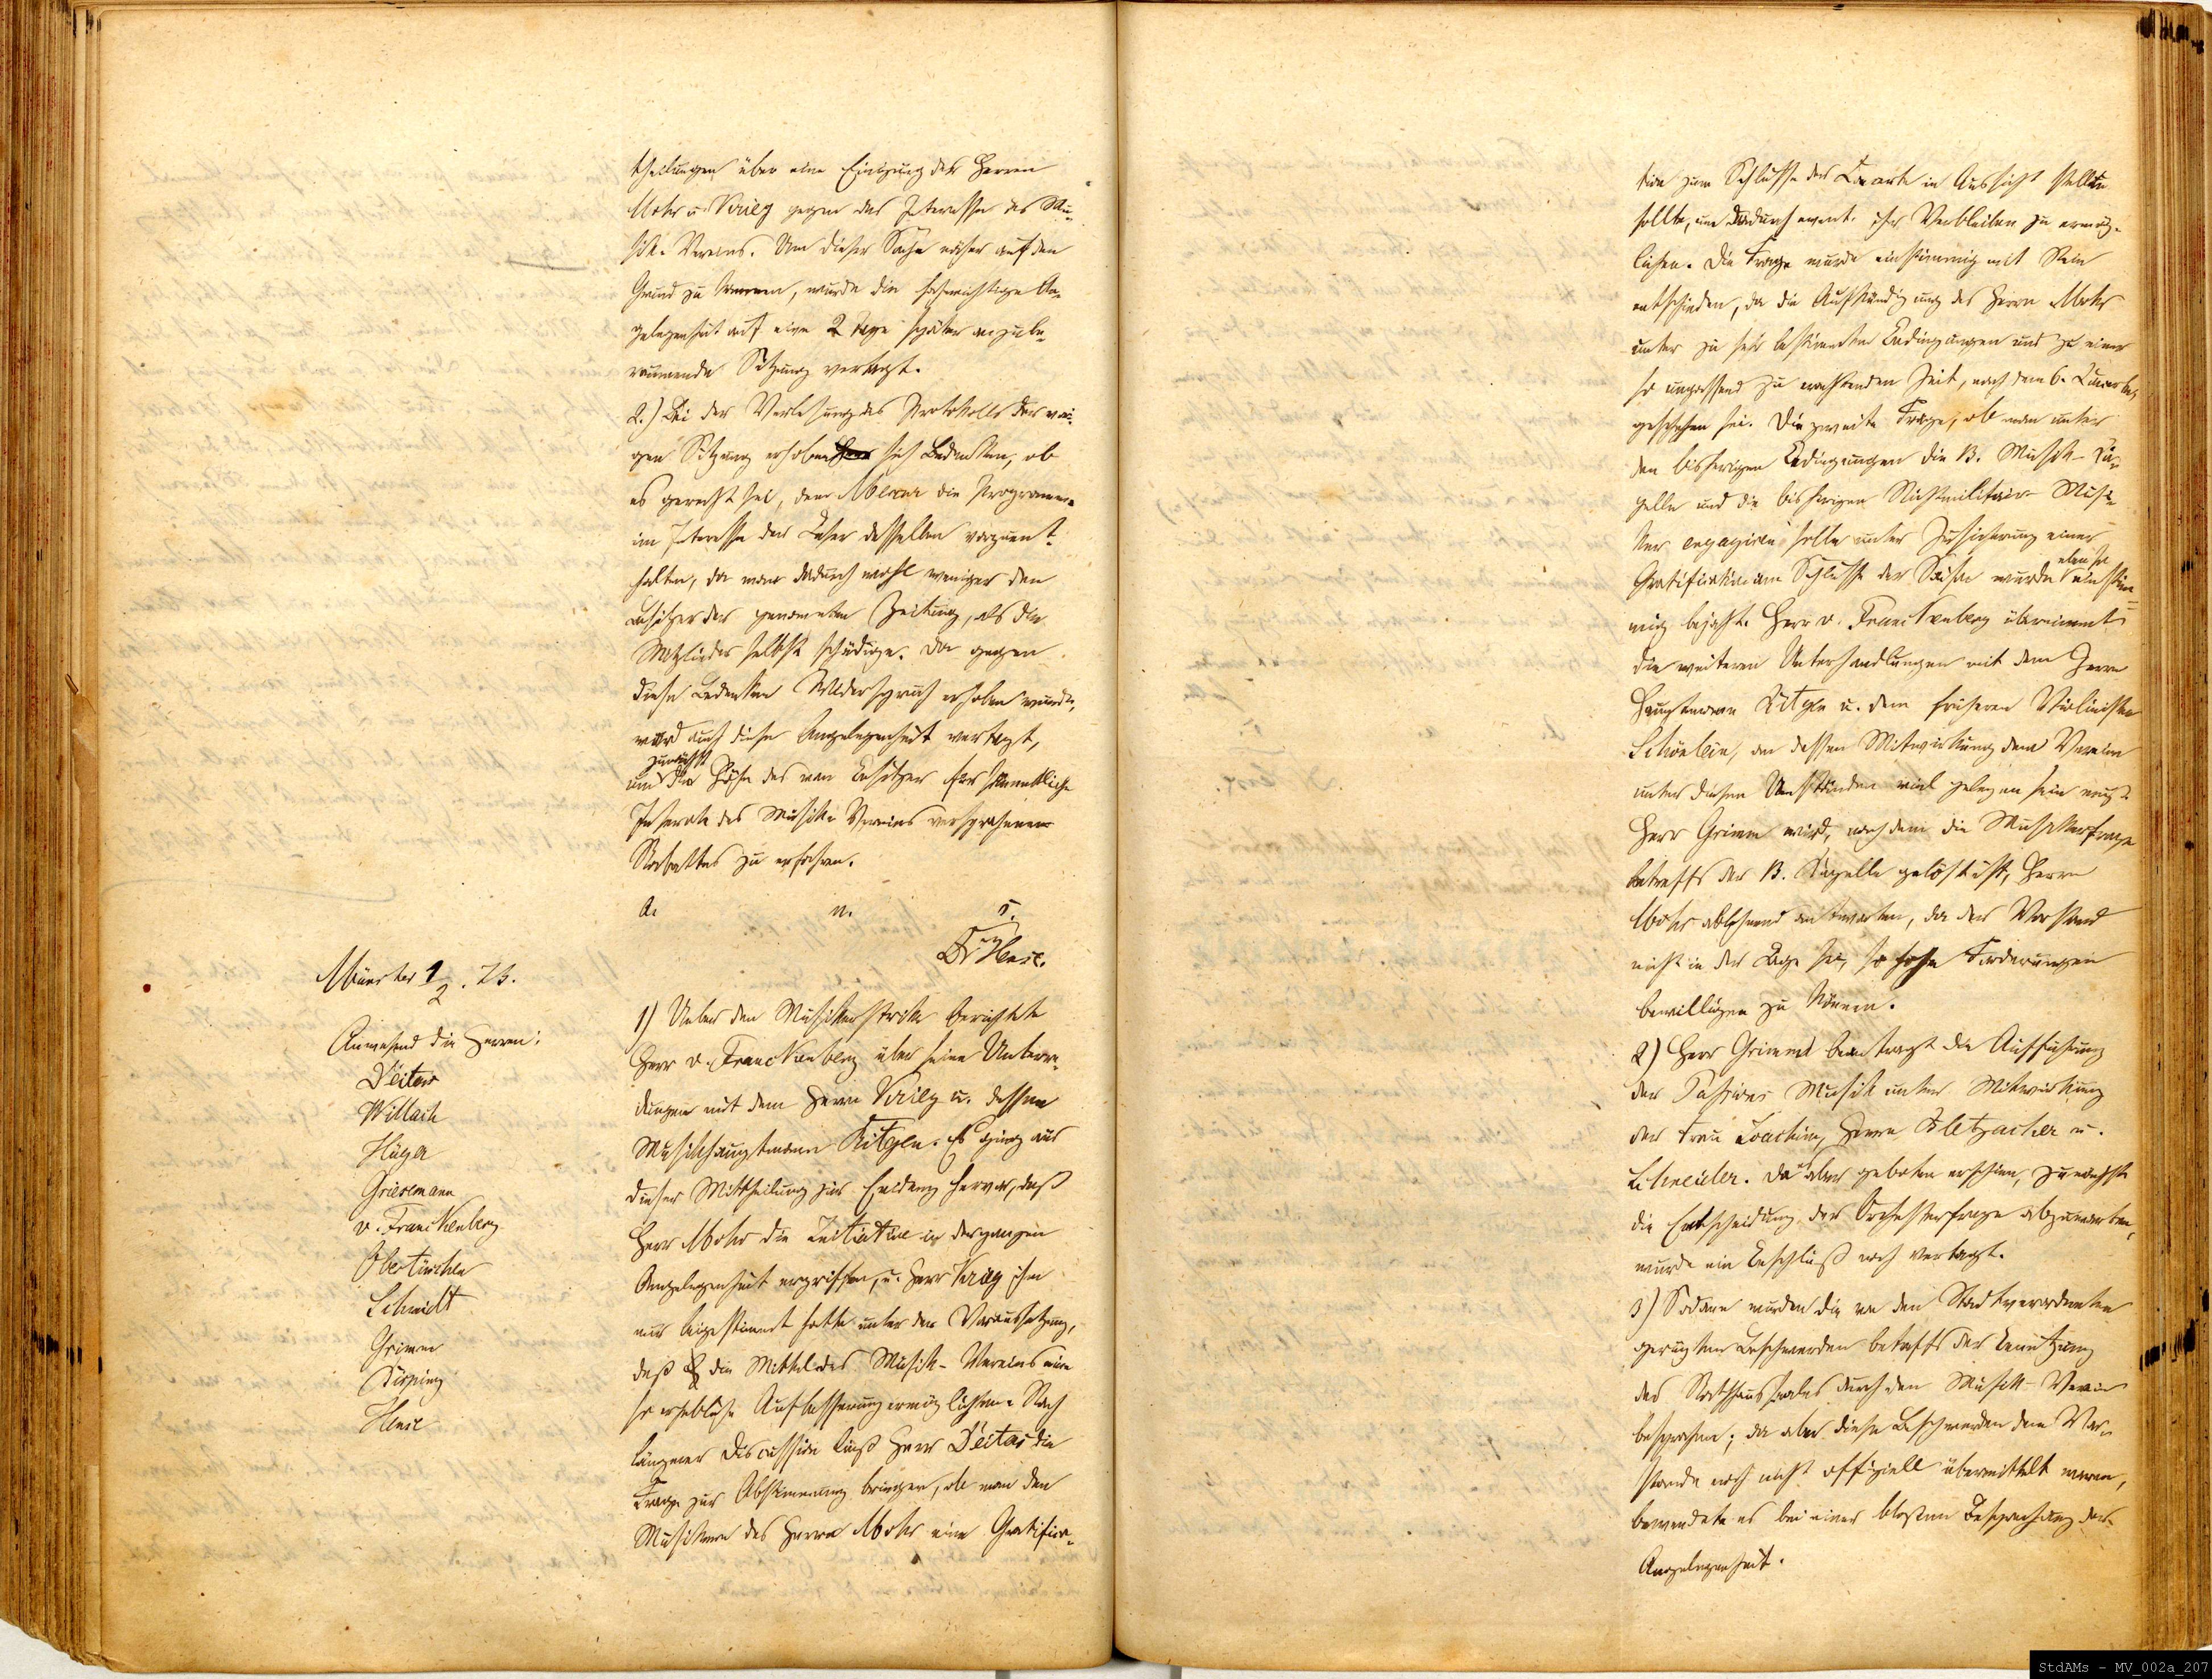 theilungen über eine Einigung der Herren
Mohr u. Krieg gegen das Interesse des Mu-
sik-Vereins. Um dieser Sache näher auf den
Grund zu kommen, wurde die hochwichtige An-
gelegenheit auf eine 2 Tage später anzube-
raumende Sitzung vertagt.
2.) Bei der Verlesung des Protokolls der vori-
gen Sitzung erhoben sich Bedenken, ob
es gerecht sei, dem Merkur die Programme
im Interesse der Leser desselben vorzuent-
halten, da man dadurch wohl weniger den
Besitzer der genannten Zeitung, als die
Mitglieder selbst schädige. Da gegen
diese Bedenken Widerspruch erhoben wurde,
ward auch diese Angelegenheit vertagt,
zunächst
um die Höhe des vom Besitzer für sämmtliche
Inserate des Musik-Vereins versprochenen
Rabattes zu erfahren.
a. u. s.
Dr Hense.
Münster 1/2. 73.
Anwesend die Herren:
Deiters
Willach
Hüger
Griesemann
v. Franckenberg
Obertüschen
Schmidt
Grimm
Bisping
Hense
1) Ueber den Musikerstrike berichtete
Herr v. Franckenberg über seine Unterre-
dungen mit dem Herrn Krieg u. dessen
Musikhauptmann Kitgen. Es ging aus
dieser Mittheilung zur Evidenz hervor, daß
Herr Mohr die Initiative in der ganzen
Angelegenheit ergriffen, u. Herr Krieg ihm
nur beigestimmt hatte unter der Voraussetzung,
daß die Mittel des Musik-Vereins eine
so erhebliche Aufbesserung ermöglichten. Nach
längerer Discussion ließ Herr Deiters die
Frage zur Abstimmung bringen, ob man den
Musikern des Herrn Mohr eine Gratifica-
tion zum Schlusse der Concerte in Aussicht stellen
sollte, um dadurch event. ihr Verbleiben zu ermög-
lichen. Die Frage wurde einstimmig mit Nein
entschieden, da die Aufkündigung des Herrn Mohr
unter zu sehr bestimmten Bedingungen und zu einer
so unpassend zu wählenden Zeit, nach dem 6. Concerte,
geschehen sei. Die zweite Frage, ob man unter
den bisherigen Bedingungen die 13. Musik-Ka-
pelle und die bisherigen Nichtmilitair-Musi-
ker engagiren solle unter Zusicherung einer
ebenso
Gratification am Schlusse der Saison wurde einstim-
mig bejaht. Herr v. Franckenberg übernimmt
die weiteren Unterhandlungen mit dem Herrn
Hauptmann Kitgen u. dem früheren Violinisten
Schönlein, an dessen Mitwirkung dem Vereine
unter diesen Umständen viel gelegen sein muß.
Herr Grimm wird, nachdem die Musikerfrage
betreffs der 13. Kapelle gelöst ist, Herrn
Mohr ablehnend antworten, da der Vorstand
nicht in der Lage sei, so hohe Forderungen
bewilligen zu können.
2) Herr Grimm beantragt die Aufführung
der Passions Musik unter Mitwirkung
der Frau Joachim, Herrn Bletzacher u.
Schneider. Da es aber geboten erschien, zunächst
die Entscheidung der Orchesterfrage abzuwarten,
wurde ein Beschluß noch vertagt.
3) Sodann wurden die von den Stadtverordneten
gerügten Beschwerden betreffs der Benutzung
des Rathhaussaales durch den Musik-Verein
besprochen; da aber diese Beschwerden dem Vor-
stande noch nicht offiziell übermittelt waren,
bewendete es bei einer bloßen Besprechung der
Angelegenheit.
StdAMs - MV_002a_207